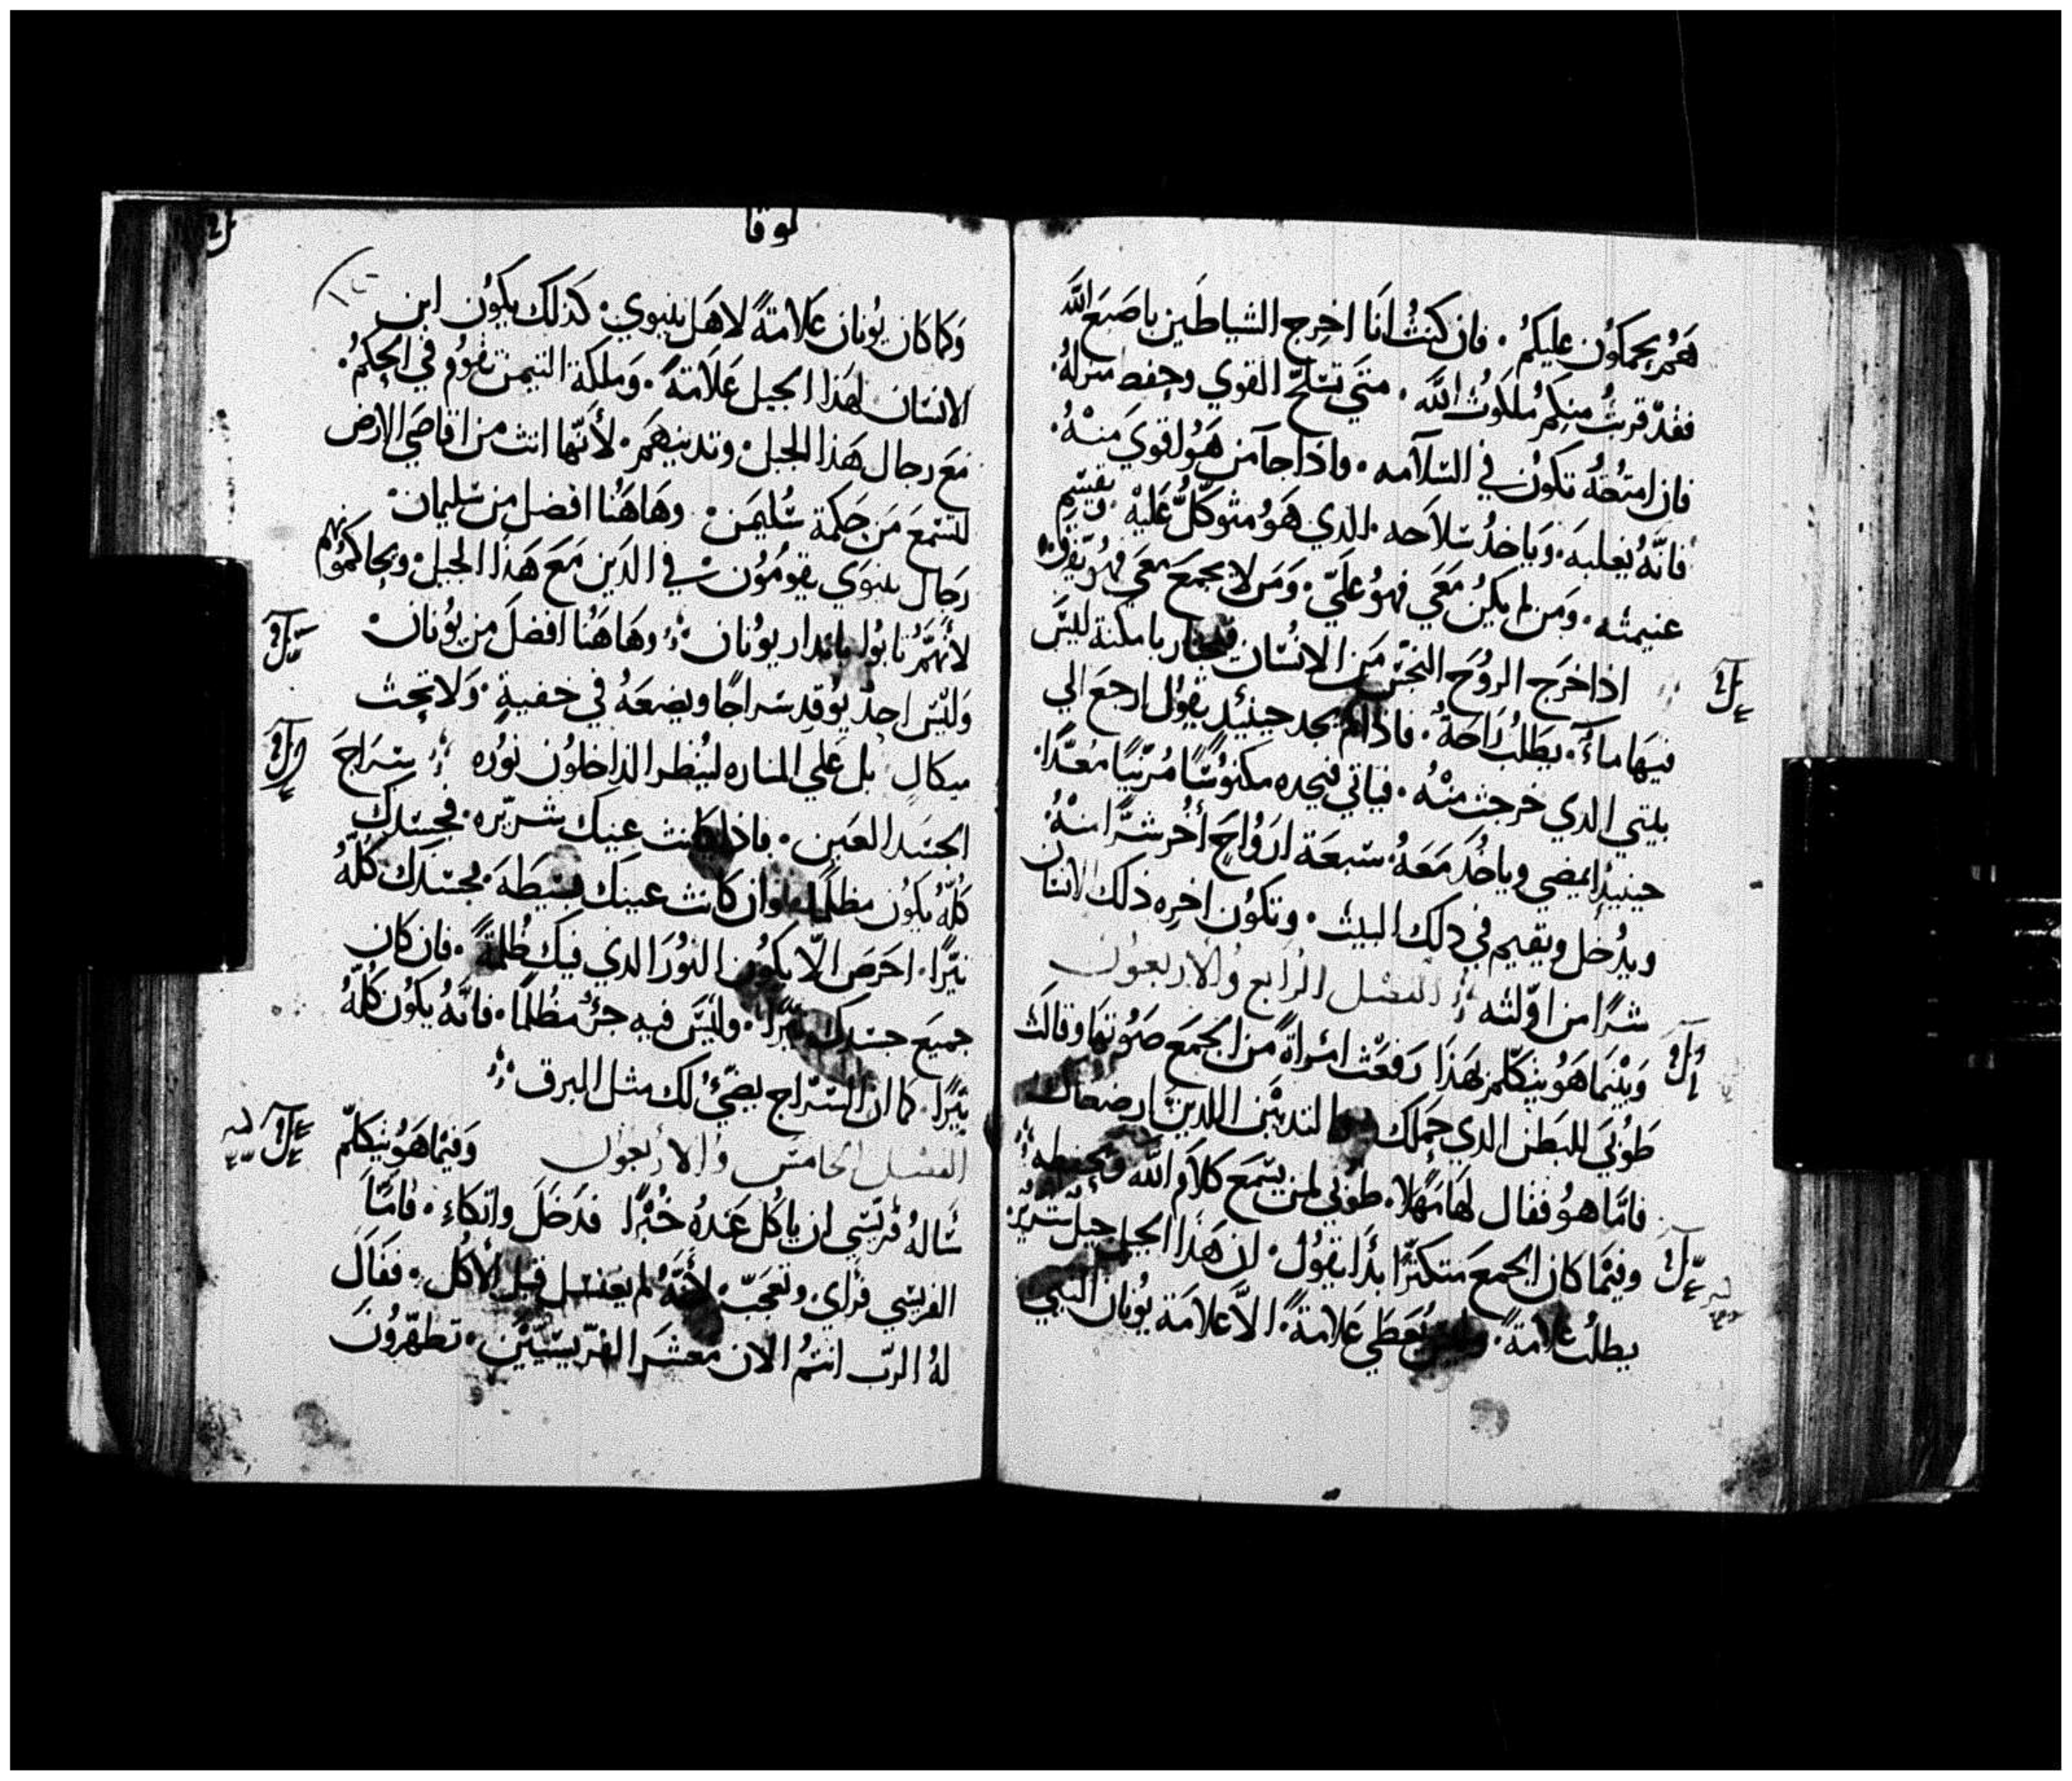 هَمُ يحكموُن عليكمُ . فان كنتُ انَا اخرج الشياطَين باصَبع اللَّه
فقدّ قربتُ منكمُ ملكوُت اللَّه . متَي تسَلحّ القوي وحفط منزلهُ .
فان امتعُتهُ تكوُن في السَلآمه . واذا جآ من هَوُ اقويَ منْهُ .
فانهَّ يُغلبهَ . وَياخدُ سَلاحه . الدي هَوُ متوكّلٌ عَليْه . ويقسَم
غنيمته . وَمَن لم يكُن مَعَي فهوُ عليّ . وَمَن لا يجمَعَ معَي فهُو يفرق
اذا خرَج الروُحَ النجسَ مَن الانسُان با مكنة ليسَ
فيهَا مآءٌ . يطَلبُ رَاحَةً . فاذا لم يجد حينيُد يقوُل ارجعَ الي
بيتي الدي خرجت منْهُ . فياتي فيجده مكنوُسًا مُزينًا مُعدًّا .
حينيدٍ يمضي وياخُدَ مَعَهُ سَبعَة ارَوُاحَ أُخُر شرًّا منهُ
ويدُخل ويقيم في دلك البيت . وتكوُن اخره ذلك الانسَان
شرًا من اوّلته الفصَل الرَابع والاربعوُن
وَبيْنَما هَوُ يتكلم بهَذَا رَفعَت امُراةً من الجمَعَ صَوُتهَا وقالت
طوُبيَ للبَطن الدي حَملك التدييْن اللدين ارضعاك
فامّا هوُ فقال لهَا مَهْلا . طوُبي لمن يسَمَع كلاَمَ اللَّه ويحفطه
وفيْما كان الجمعَ متكثرًا بدَأ يقوُل . ان هَذَا الجيل جيل شريّر
يطلُب علامةً . وليسَ يعَطَي عَلامَةً . الاَّ عَلامَة يوُنان النبي
لوقا
وَكما كان يوُنان عَلامَةً لاهَل نينوي . كذلك يكوُن ابن
الانسَان لهَذا الجيل عَلاَمَةً . وَملكة التيمن تقوُم في الحكمُ .
مَعَ رجال هَذا الجيل . وتدينهمَ . لأَنّها اتت من اقاصَي الارض
لتسَمعَ مَن حَكمة سُليمَن . وهَاهَنُا افضَل من سَليمان .
رَجال نينوَي يقوُموُن في الدَين مَعَ هَذا الجيل . ويحاكموُنهم
لأَنهَّمُ تابوُا بانِدار يوُنان . وهَاهَنُا افضَلَ من يوُنان .
وَليسَ احدٌ يوُقد سَراجًا ويضعهُ في خفيةٍ . وَلا تحت
ميكال بل عَلي المناره ليُنظر الداخلوُن نوُره سَرَاجَ
الجسَد العَين . فاذا كانت عينك شريّره . فجسَدك
كلهُّ يكوُن مظلمًا وان كانت عينك بسَيطَة . فجسَدك كلهُّ
نيّرًا . احَرَصَ الاّ يكوُن النوُرَ الذي فيَك ظُلمةً . فان كان
جميعَ جسَدك نيّرًا . وليسَ فيه جزٌ مظُلمًا . فانهَّ يكوُن كلهُّ
نيّرًا . كما ان السَرّاج يضَيُّ لك مثل البرق
الفصَل الخامسَ والاربعَوُن وَفيْما هَوُ يتكلمّ
سَالهُ فرّيسَي ان ياكل عَندهُ خبُزًا فدَخَلَ واتكاءِ . فامَّا
الفريسَي فرَاي . وتعَجبّ . لأَنهَّ لم يغتسَل قبل الأكُل . فقالَ
لهُ الربّ انتمُ الان معَشرَ الفرّيسَييّنَ . تطهّروُن